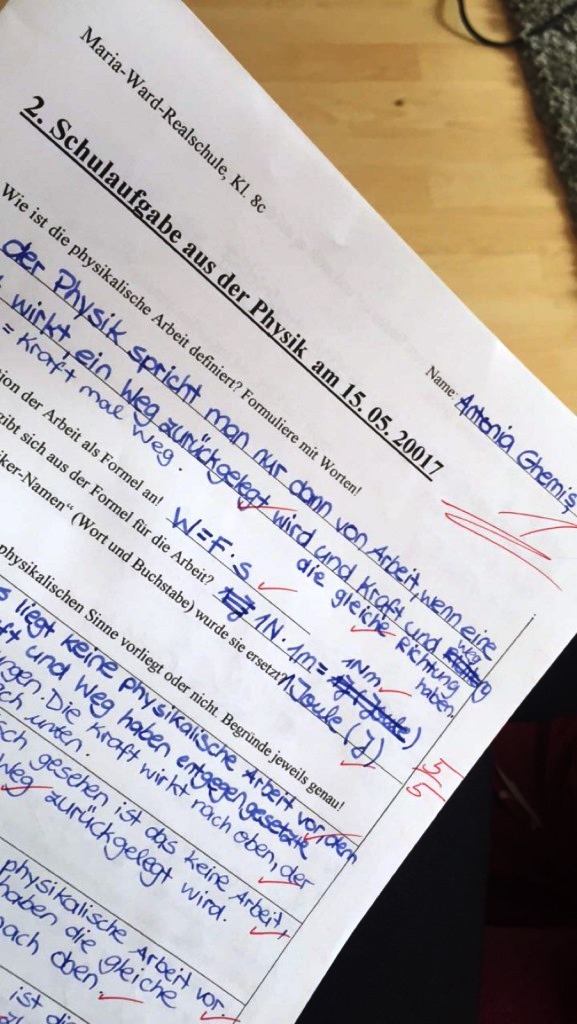 Maria-Ward-Realschule, Kl. 8c
Name: Antonia Ghemis
2. Schulaufgabe aus der Physik am 15. 05. 20017
Wie ist die physikalische Arbeit definiert? Formuliere mit Worten!
der Physik spricht man nur dann von Arbeit, wenn eine
wirkt ein Weg zurückgelegt wird und Kraft und Weg
die gleiche Richtung haben.
= Kraft mal Weg.
ion der Arbeit als Formel an!
W=F·s
gibt sich aus der Formel für die Arbeit?
1N · 1m = 1Nm
iker-Namen" (Wort und Buchstabe) wurde sie ersetzt?
1 Joule (J)
5/5
physikalischen Sinne vorliegt oder nicht. Begründe jeweils genau!
s liegt keine physikalische Arbeit vor, denn
ft und Weg haben entgegengesetzte
ungen. Die Kraft wirkt nach oben, der
ch unten.
sch gesehen ist das keine Arbeit,
Weg zurückgelegt wird.
physikalische Arbeit vor.
haben die gleiche
nach oben.
ist die